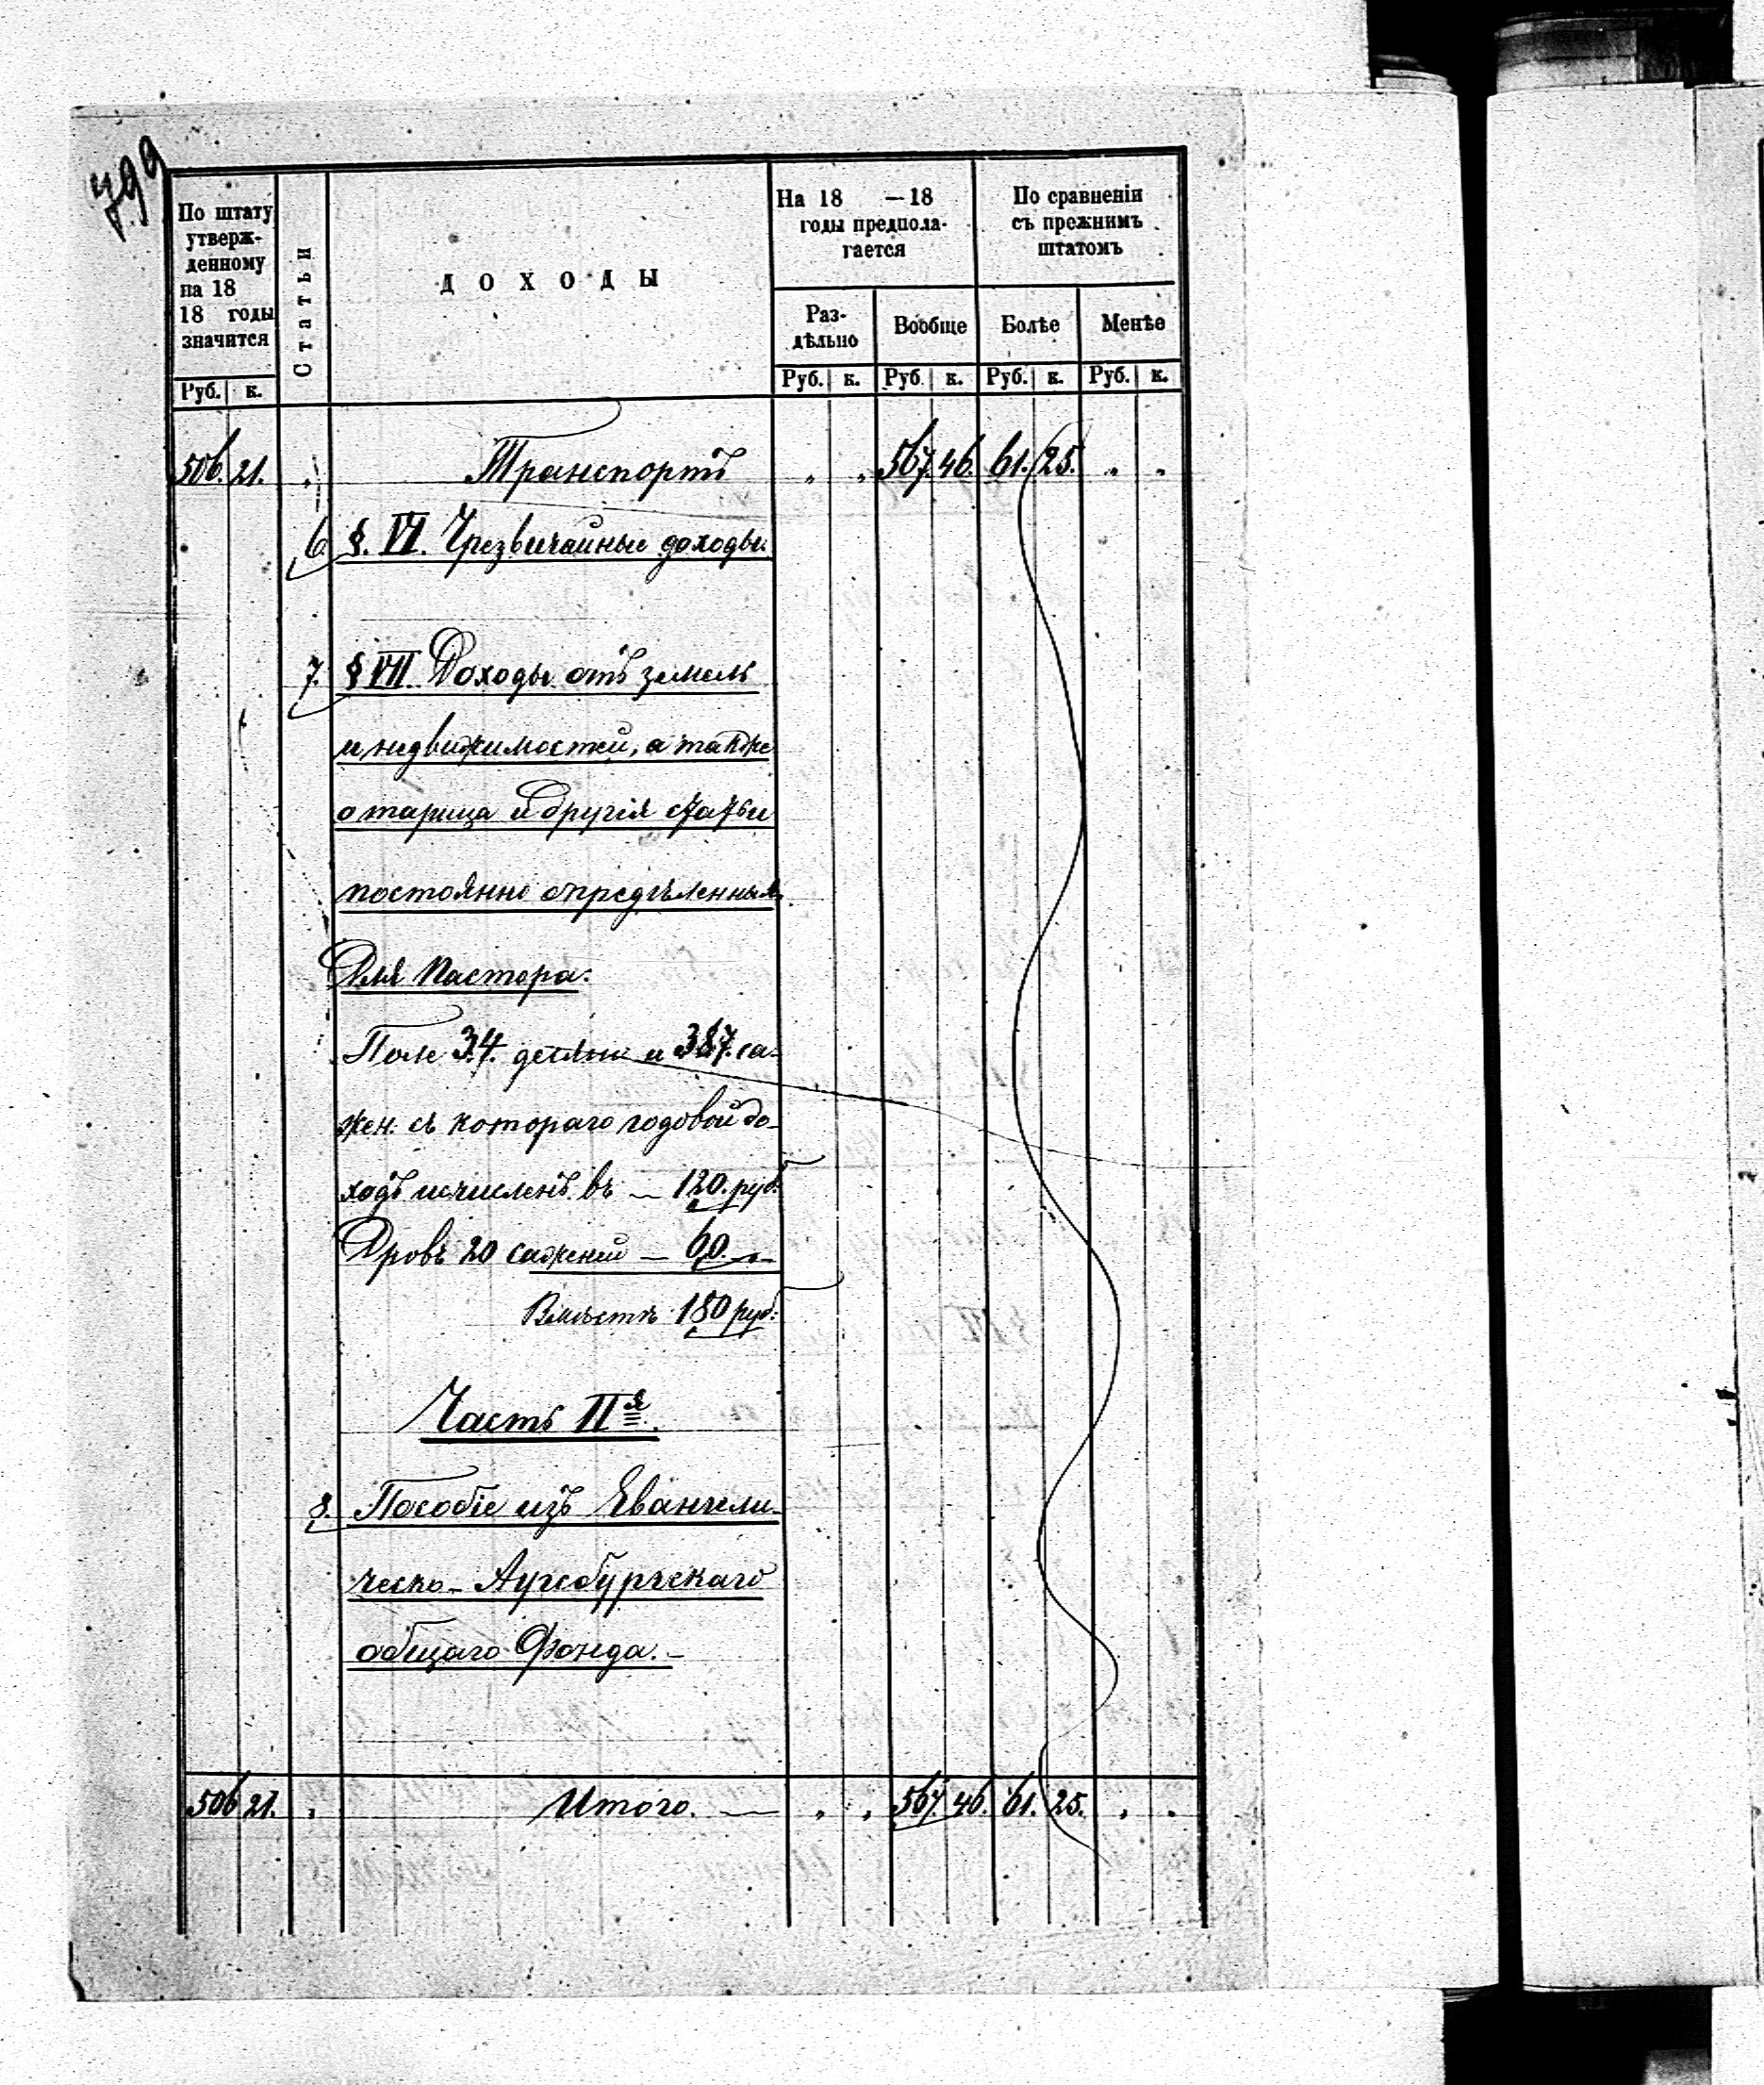 799
По штату
утверж-
денному
на 18
18 годы
значится
Руб. к.
Статьи
ДОХОДЫ
На 18 —18
годы предпола-
гается
По сравненіи
съ прежнимъ
штатомъ
Раз-
дѣльно
Вообще
Болѣе
Менѣе
Руб. к. Руб. к. Руб. к. Руб. к.
506. 21. „ Транспортъ „ „ 567. 46. 61. 25. „ „
6 §. VI. Чрезвычайные доходы.
7. § VII. Доходы отъ земель
и недвижимостей, а также
и другія статьи
постоянно опредѣленныя
Для Пастора:
Поле 34. десятин и 387. са-
жен. съ котораго годовой до-
ходъ исчисленъ въ — 120. руб.
Дровъ 20 саженей — 60. „—
Вмѣстѣ 180 руб:
Часть IIя.
8. Пособіе изъ Евангели-
ческо-Аугсбургскаго
общаго Фонда. —
506 21. „ Итого. — „ „ 567 46. 61. 25. „ „